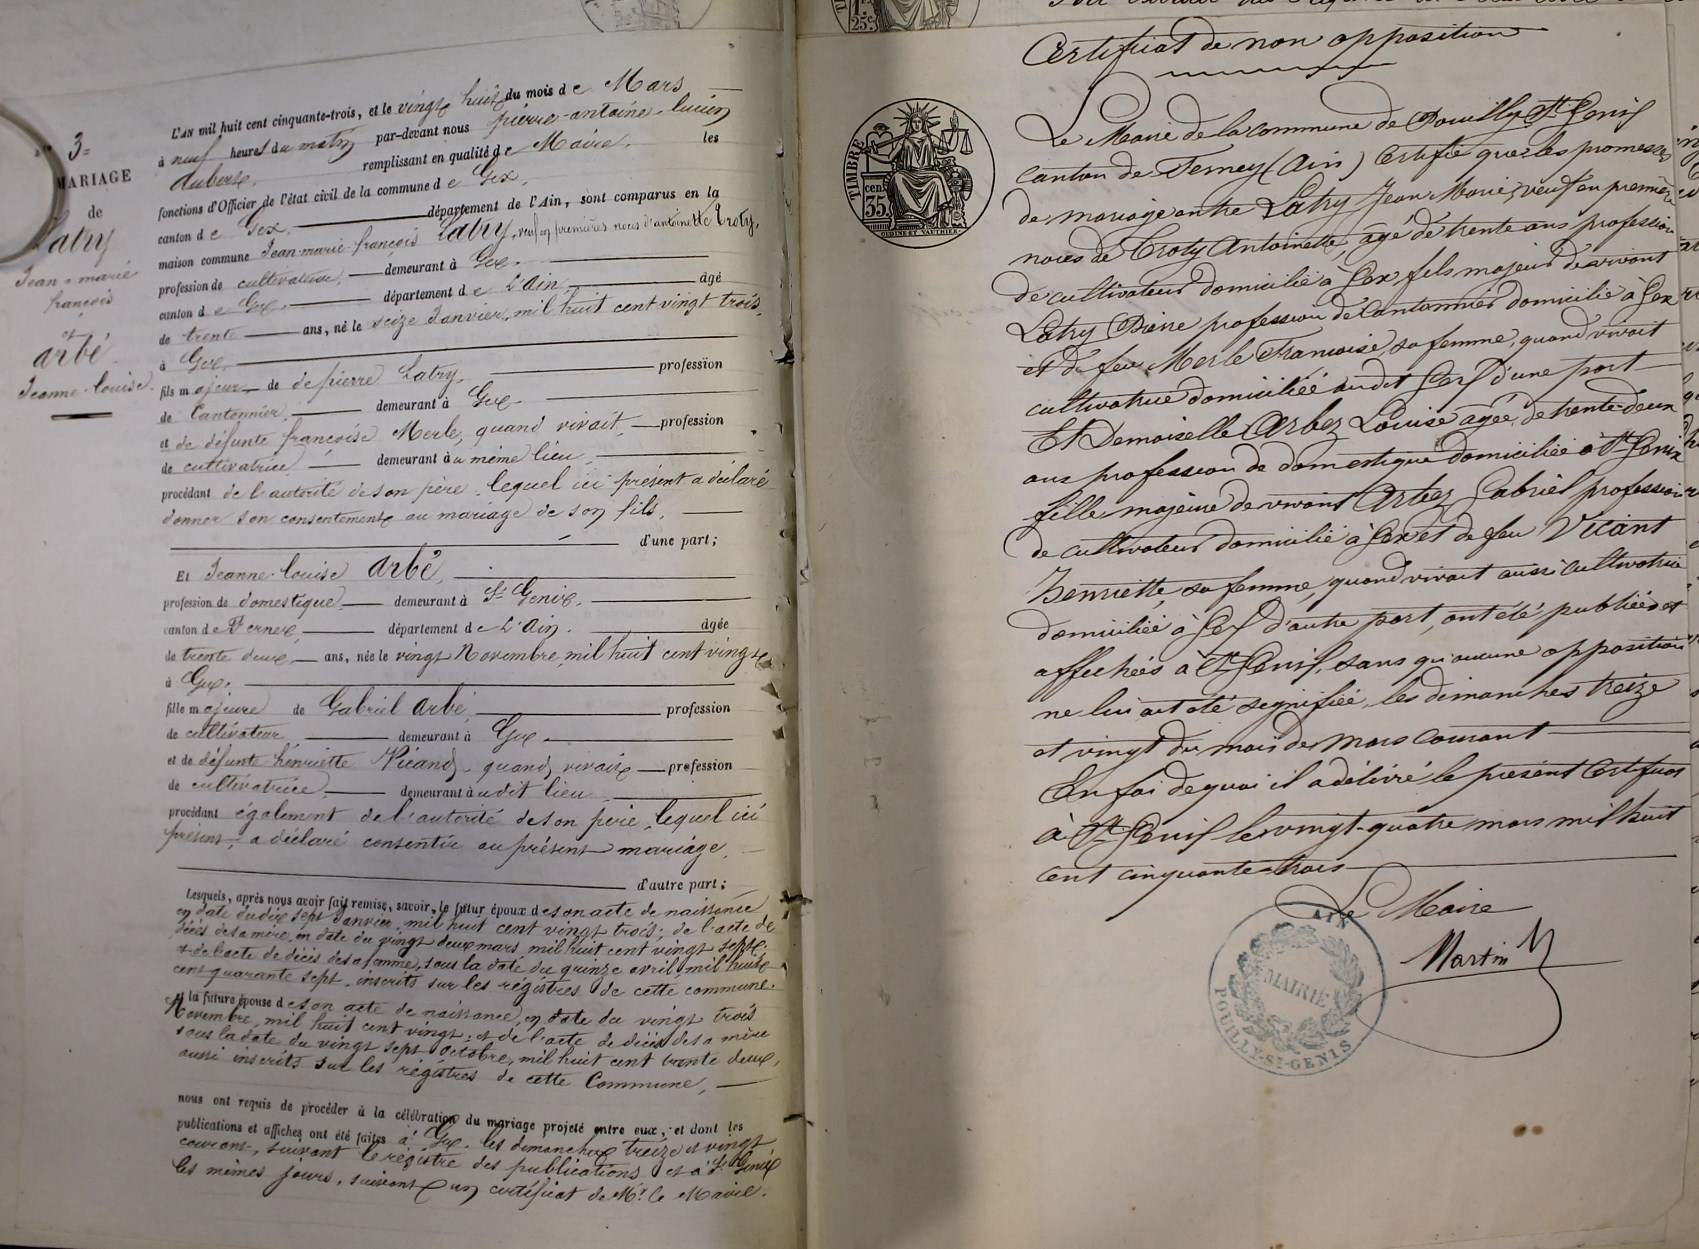 3=
MARIAGE
de
Latry
Jean-marie
françois
et
arbé
Jeanne-louise.
L'AN mil huit cent cinquante-trois, et le vingt huit du mois de Mars
à neuf heures du matin par-devant nous pierre-antoine-lucien
remplissant en qualité de Maire, les
fonctions d'Officier de l'état civil de la commune de Gex,
canton de Gex, département de l'Ain, sont comparus en la
maison commune Jean-marie-françois Latry, veuf en premières noces d'antoinette Troty,
profession de cultivateur, demeurant à Gex,
canton de Gex, département de L'Ain, âgé
de trente ans, né le seize Janvier, mil huit cent vingt trois,
à Gex,
fils majeur de de pierre Latry, profession
de Cantonnier, demeurant à Gex
et de défunte françoise Merle, quand vivait, profession
de cultivatrice demeurant au même lieu,
procédant de l'autorité de son père, lequel ici présent a déclaré
donner son consentement au mariage de son fils,
d'une part;
Et Jeanne-louise arbé,
profession de domestique demeurant à St Genix,
canton de Fernex, département de L'Ain. âgée
de trente deux, ans, née le vingt Novembre, mil huit cent vingt
à Gex,
fille majeure de Gabriel arbé, profession
de cultivateur demeurant à Gex
et de défunte henriette Vicand, quand vivait profession
de cultivatrice, demeurant audit lieu
procédant également de l'autorité de son père, lequel ici
présent, a déclaré consentir au présent mariage,
d'autre part;
Lesquels, après nous avoir fait remise, savoir, le futur époux de son acte de naissance
en date du dix sept Janvier, mil huit cent vingt trois; de l'acte de
décès de sa mère, en date du vingt deux mars mil huit cent vingt sept,
et de l'acte de décès de sa femme, sous la date du quinze avril mil huit
cent quarante sept, inscrits sur les régistres de cette commune.
Et la future épouse de son acte de naissance, en date du vingt trois
Novembre, mil huit cent vingt; et de l'acte de décès de sa mère
sous la date du vingt sept octobre, mil huit cent trente deux,
aussi inscrits sur les régistres de cette Commune,
nous ont requis de procéder à la célébration du mariage projeté entre eux, et dont les
publications et affiches ont été faites à Gex, les dimanches treize et vingt
courant, suivant le régistre des publications, et à St Genix
les mêmes jours, suivant un certificat de Mr le Maire.
Certificat de non opposition
TIMBRE
35 cent
OUDINE ET VAUTHIER
Le Maire de la commune de Pouilly St Genis
canton de Ferney (Ain) Certifie que les promesses
de mariage entre Latry Jean Marie, veuf en première
noces de Troty Antoinette, agé de trente ans profession
de cultivateur domicilié à Gex fils majeur de vivant
Latry Pierre profession de Cantonnier domicilié à Gex
et de feu Merle Francoise, sa femme, quand vivait
cultivatrice domiciliée au dit Gex d'une part
Et Demoiselle Arbez Louise agée de trente deux
ans profession de domestique domiciliée à St Genix
fille majeure de vivant Arbez Gabriel profession
de cultivateur domicilié à Gex et de feu Vicant
Henriette, sa femme, quand vivait aussi cultivatrice
domiciliée à Gex d'autre part, ont été publiées et
affichées à St Genis, sans qu'aucune opposition
ne lui ait été signifiée, les dimanches treize
et vingt du mois de Mars courant
En foi de quoi il a délivré le présent Certificat
à St Genis le vingt-quatre mars mil huit
cent cinquante trois
Le Maire
Martin
AIN
MAIRIE
POUILLY-ST-GENIS